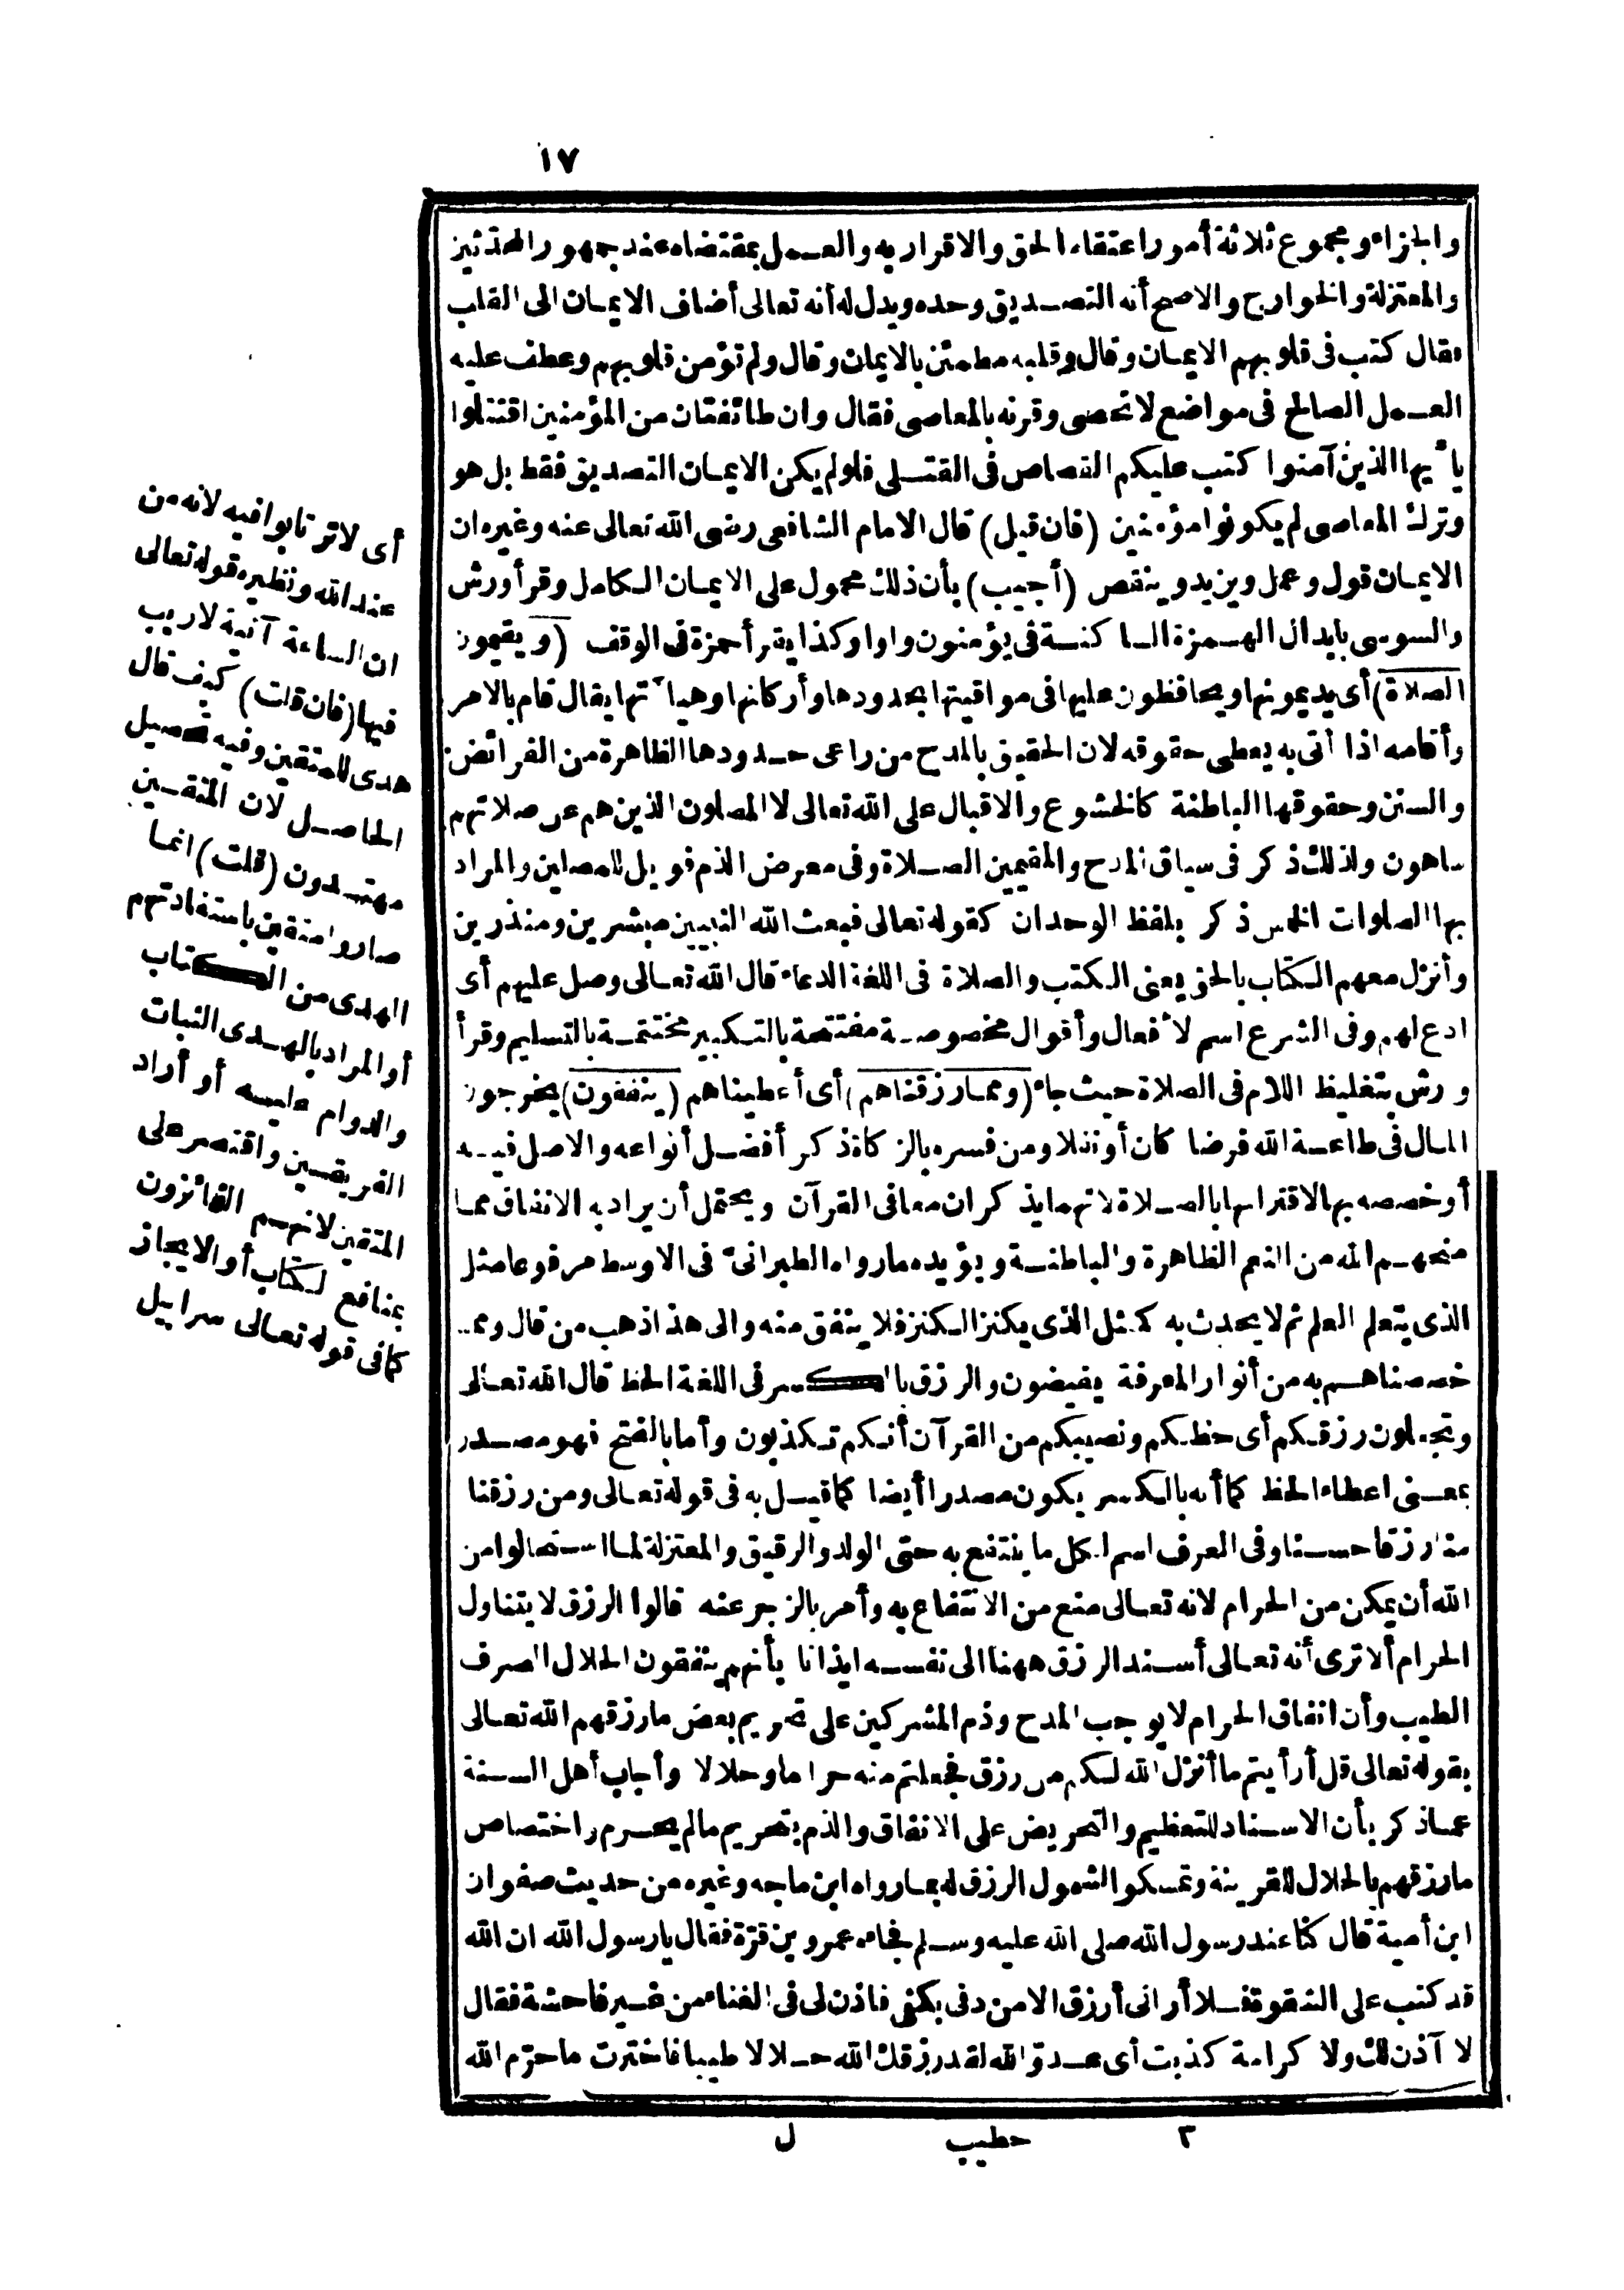 ١٧
والجزاء ومجموع ثلاثة أمور اعتقاد الحق والاقرار به والعمل بمقتضاه عند جمهور المحدثين
والمعتزلة والخوارج والاصح أنه التصديق وحده ويدل له أنه تعالى أضاف الايمان الى القلب
فقال كتب فى قلوبهم الايمان وقال وقلبه مطمئن بالايمان وقال ولم تؤمن قلوبهم وعطف عليه
العمل الصالح فى مواضع لا تحصى وقرنه بالمعاصى فقال وان طائفتان من المؤمنين اقتتلوا
يا أيها الذين آمنوا كتب عليكم القصاص فى القتلى فلو لم يكن الايمان التصديق فقط بل هو
وترك المعاصى لم يكونوا مؤمنين (فان قيل) قال الامام الشافعى رضى الله تعالى عنه وغيره ان
الايمان قول وعمل ويزيد وينقص (أجيب) بأن ذلك محمول على الايمان الكامل وقرأ ورش
والسوسى بابدال الهمزة الساكنة فى يؤمنون واوا وكذا يقرأ حمزة فى الوقف (ويقيمون
الصلاة) أى يديمونها ويحافظون عليها فى مواقيتها بحدودها وأركانها وهيا ٓتها يقال قام بالامر
وأقامه اذا أتى به يعطى حقوقه لان الحقيق بالمدح من راعى حدودها الظاهرة من الفرائض
والسنن وحقوقها الباطنة كالخشوع والاقبال على الله تعالى لا المصلون الذين هم عن صلاتهم
ساهون ولذلك ذكر فى سياق المدح والمقيمين الصلاة وفى معرض الذم فويل للمصلين والمراد
بها الصلوات الخمس ذكر بلفظ الوحدان كقوله تعالى فبعث الله النبيين مبشرين ومنذرين
وأنزل معهم الكتاب بالحق يعنى الكتب والصلاة فى اللغة الدعاء قال الله تعالى وصل عليهم أى
ادع لهم وفى الشرع اسم لأفعال وأقوال مخصوصة مفتتحة بالتكبير مختتمة بالتسليم وقرأ
ورش بتغليظ اللام فى الصلاة حيث جاء (ومما رزقناهم) أى أعطيناهم (ينفقون) يخرجون
المال فى طاعة الله فرضا كان أو نفلا ومن فسره بالزكاة ذكر أفضل أنواعه والاصل فيه
أو خصصه بها لاقترانها بالصلاة لانهما يذكران معا فى القرآن ويحتمل أن يراد به الانفاق مما
منحهم الله من النعم الظاهرة والباطنة ويؤيده ما رواه الطبرانىّ فى الاوسط مرفوعا مثل
الذى يتعلم العلم ثم لا يحدث به كمثل الذى يكنز الكنز فلا ينفق منه والى هذا ذهب من قال ومما
خصصناهم به من أنوار المعرفة يفيضون والرزق بالكسر فى اللغة الحظ قال الله تعالى
وتجعلون رزقكم أى حظكم ونصيبكم من القرآن أنكم تكذبون وأما بالفتح فهو مصدر
بمعنى اعطاء الحظ كما أنه بالكسر يكون مصدرا أيضا كما قيل به فى قوله تعالى ومن رزقنا
منا رزقا حسنا وفى العرف اسم لكل ما ينتفع به حتى الولد والرقيق والمعتزلة لما استحالوا من
الله أن يمكن من الحرام لانه تعالى منع من الانتفاع به وأمر بالزجر عنه قالوا الرزق لا يتناول
الحرام ألا ترى أنه تعالى أسند الرزق ههنا الى نفسه ايذانا بأنهم ينفقون الحلال الصرف
الطيب وأن انفاق الحرام لا يوجب المدح وذم المشركين على تحريم بعض ما رزقهم الله تعالى
بقوله تعالى قل أرأيتم ما أنزل الله لكم من رزق فجعلتم منه حراما وحلالا وأجاب أهل السنة
عما ذكر بأن الاسناد للتعظيم والتحريض على الانفاق والذم بتحريم ما لم يحرم واختصاص
ما رزقهم بالحلال للقرينة وتمسكوا لشمول الرزق له بما رواه ابن ماجه وغيره من حديث صفوان
ابن أمية قال كنا عند رسول الله صلى الله عليه وسلم فجاءه عمرو بن قرّة فقال يا رسول الله ان الله
قد كتب على الشقوة فلا أرانى أرزق الا من دفى بكفى فاذن لى فى الغناء من غير فاحشة فقال
لا آذن لك ولا كرامة كذبت أى عدوّ الله لقد رزقك الله حلالا طيبا فاخترت ما حرّم الله
أى لا ترتابوا فيه لانه من
عند الله ونظيره قوله تعالى
ان الساعة آتية لا ريب
فيها (فان قلت) كيف قال
هدى للمتقين وفيه تحصيل
الحاصل لان المتقين
مهتدون (قلت) انما
صاروا متقين باستفادتهم
الهدى من الكتاب
أو المراد بالهدى الثبات
والدوام عليه أو أراد
الفريقين واقتصر على
المتقين لانهم الفائزون
بمنافع الكتاب أو الايجاز
كما فى قوله تعالى سرابيل
٣ خطيب ل